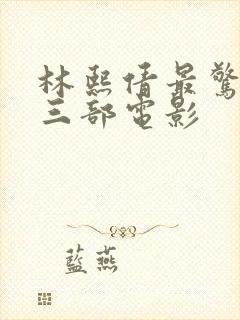 林熙倩最驚
三部電影
藍燕